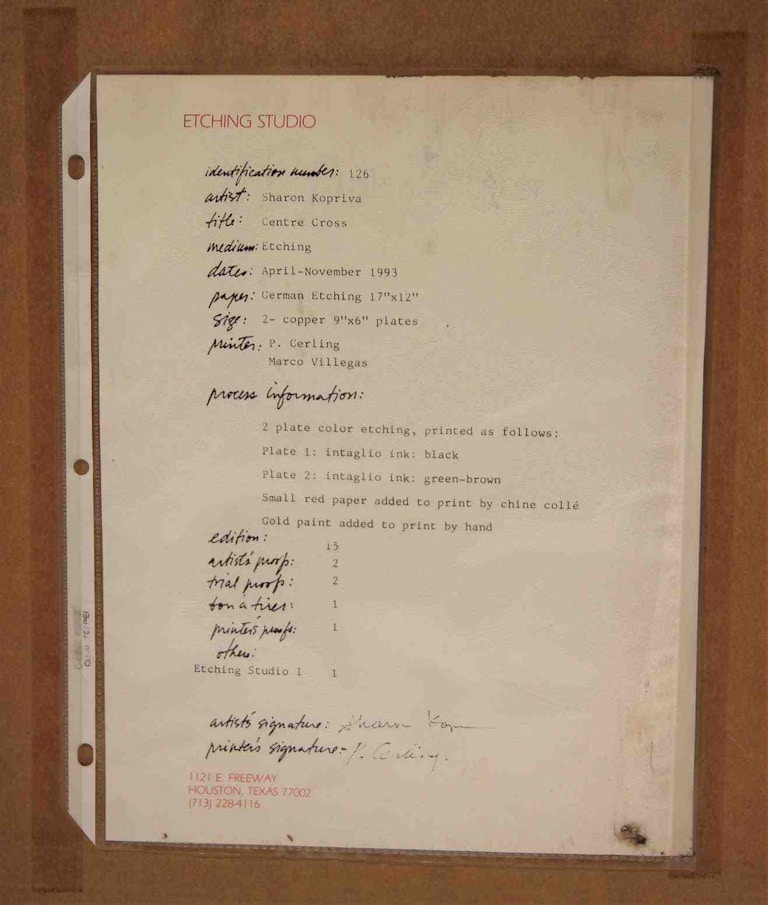 ETCHING STUDIO
identification number: 126
artist: Sharon Kopriva
title: Centre Cross
medium: Etching
dates: April-November 1993
paper: German Etching 17"x12"
size: 2- copper 9"x6" plates
printer: P. Cerling
Marco Villegas
process information:
2 plate color etching, printed as follows:
Plate 1: intaglio ink: black
Plate 2: intaglio ink: green-brown
Small red paper added to print by chine collé
Gold paint added to print by hand
edition: 15
artist's proof: 2
trial proof: 2
bon a tirer: 1
printer's proof: 1
other:
Etching Studio 1 1
artist's signature: Sharon Kopriva
printer's signature: P. Cerling
1121 E. FREEWAY
HOUSTON, TEXAS 77002
(713) 228-4116